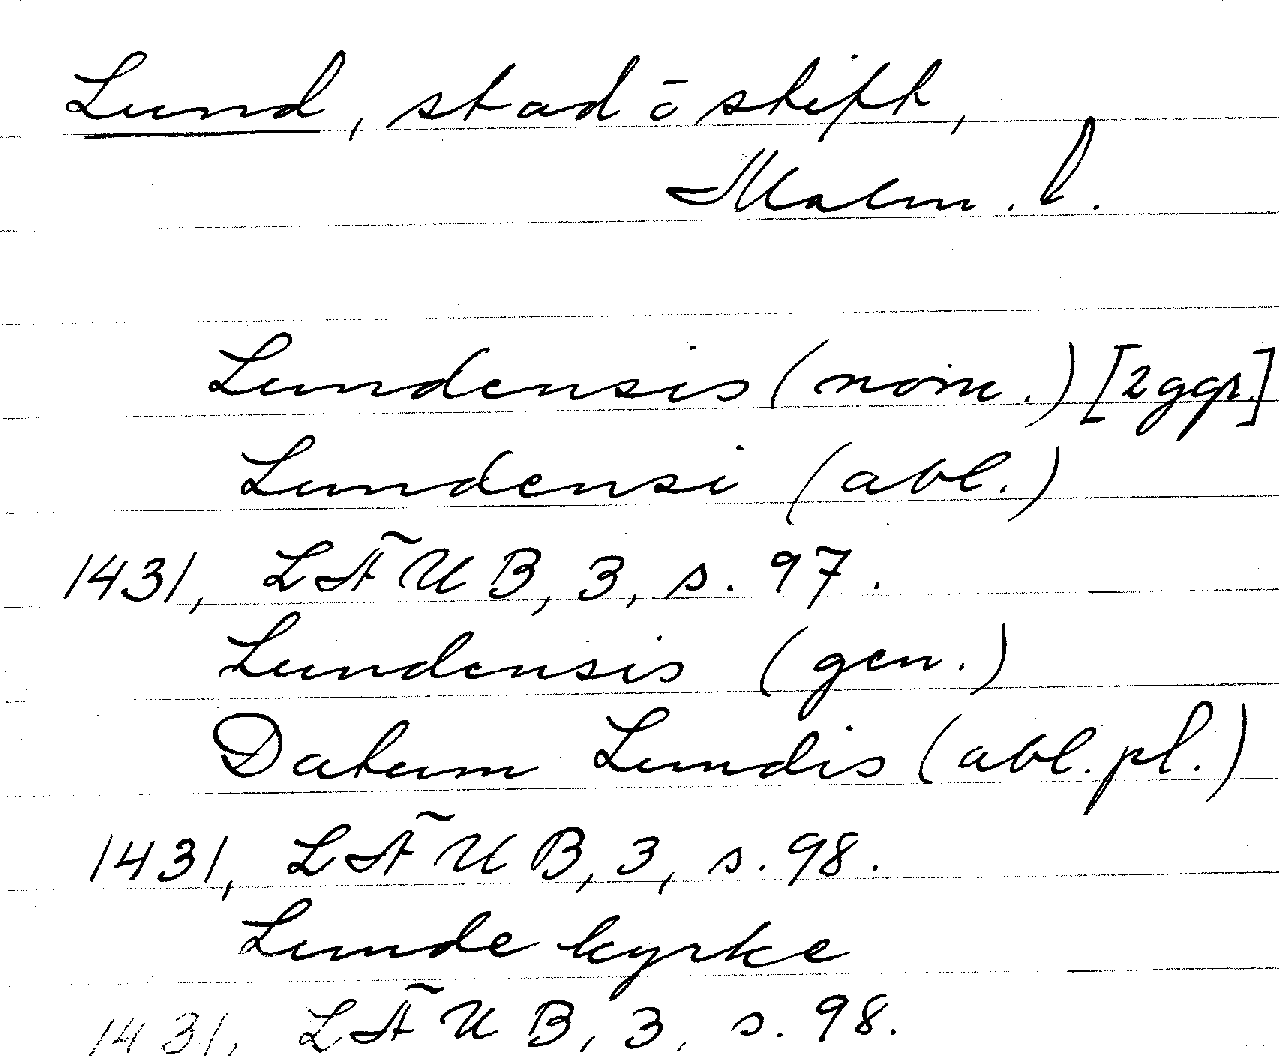 Lund, stad o stift,
Malm. l.
Lundensis (nom.) [2 ggr.]
Lundensi (abl.)
1431, LÄUB, 3, s. 97.
Lundensis (gen.)
Datum Lundis (abl. pl.)
1431, LÄUB, 3, s. 98.
Lunde kyrke
1431, LÄUB, 3, s. 98.